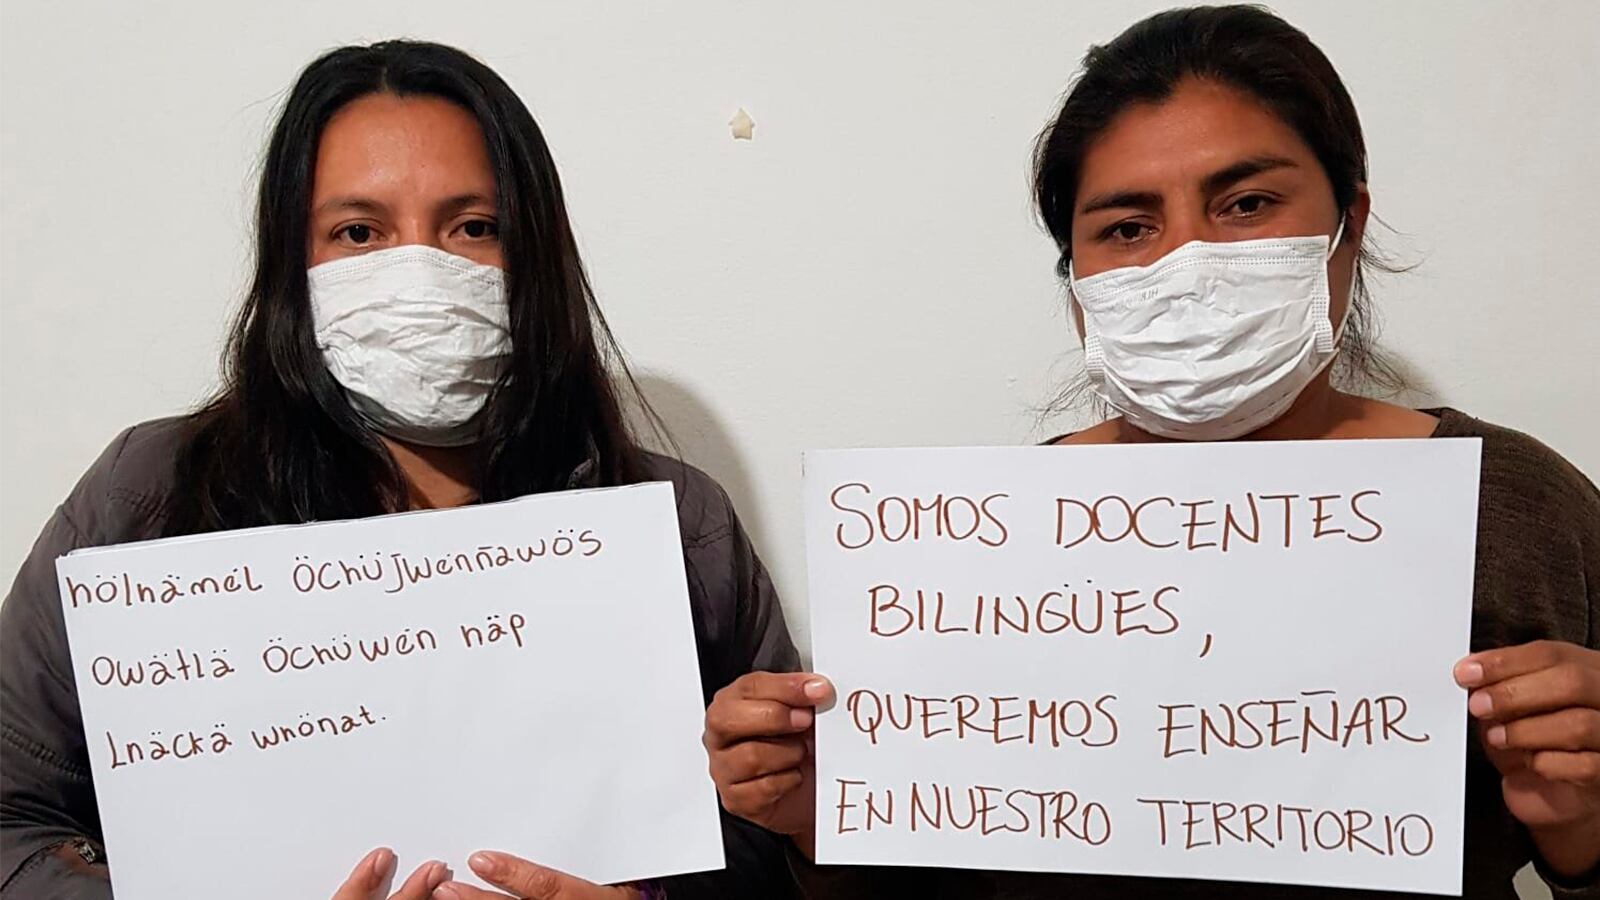 hölhämél Öchüjwenñawös
Owätlä Öchüwén häp
Lhäckä whönat.
SOMOS DOCENTES
BILINGÜES,
QUEREMOS ENSEÑAR
EN NUESTRO TERRITORIO